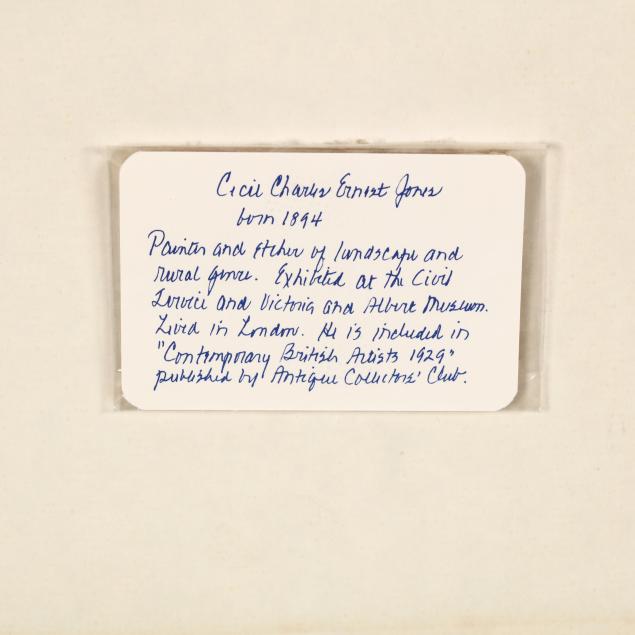 Cecil Charles Ernest Jones
born 1894
Painter and etcher of landscape and
rural genre. Exhibited at the Civil
Service and Victoria and Albert Museum.
Lived in London. He is included in
"Contemporary British Artists 1929"
published by Antique Collectors' Club.